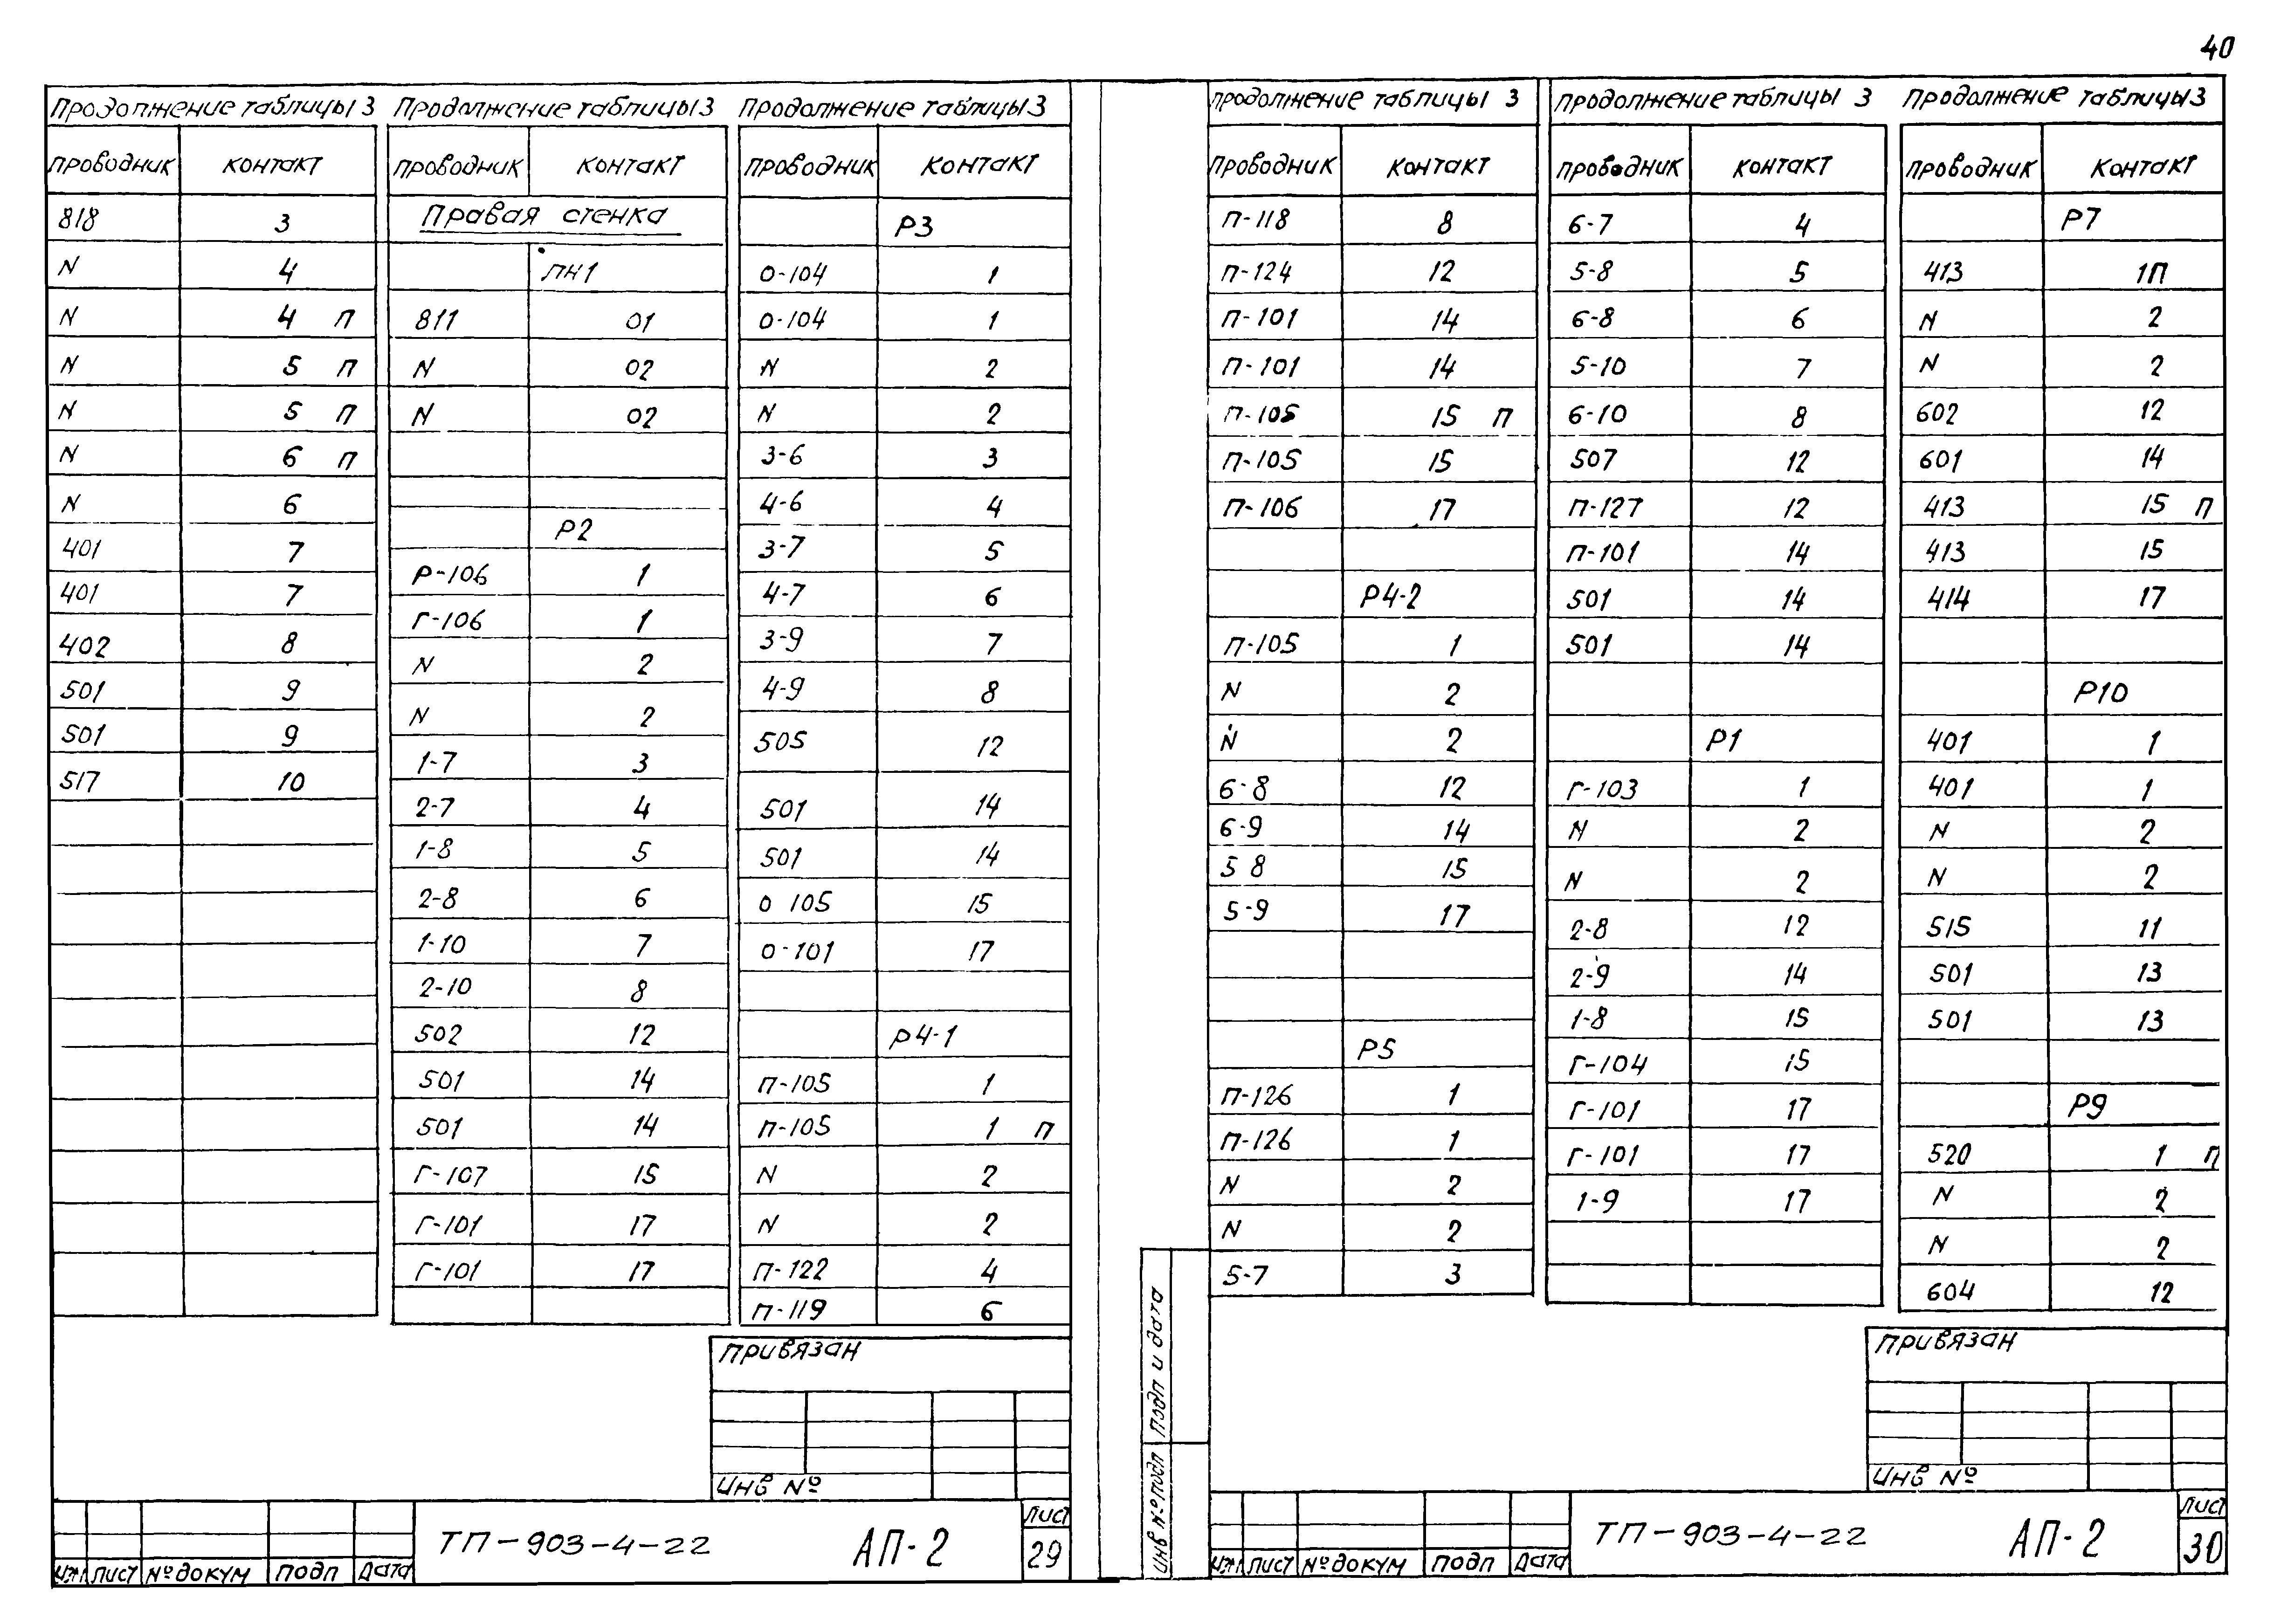 40
Продолжение таблицы 3
проводник контакт
818 3
N 4
N 4 п
N 5 п
N 5 п
N 6 п
N 6
401 7
401 7
402 8
501 9
501 9
517 10
Продолжение таблицы 3
проводник контакт
Правая стенка
ПН1
811 01
N 02
N 02
Р2
Р-106 1
Г-106 1
N 2
N 2
1-7 3
2-7 4
1-8 5
2-8 6
1-10 7
2-10 8
502 12
501 14
501 14
Г-107 15
Г-101 17
Г-101 17
Продолжение таблицы 3
проводник контакт
Р3
0-104 1
0-104 1
N 2
N 2
3-6 3
4-6 4
3-7 5
4-7 6
3-9 7
4-9 8
505 12
501 14
501 14
0 105 15
0-101 17
Р4-1
П-105 1
П-105 1 п
N 2
N 2
П-122 4
П-119 6
Привязан
Инв №
Изм лист № докум подп Дата
ТП-903-4-22 АП-2
Лист
29
продолжение таблицы 3
проводник контакт
П-118 8
П-124 12
П-101 14
П-101 14
П-105 15 п
П-105 15
П-106 17
Р4-2
П-105 1
N 2
N 2
6-8 12
6-9 14
5 8 15
5-9 17
Р5
П-126 1
П-126 1
N 2
N 2
5-7 3
продолжение таблицы 3
проводник контакт
6-7 4
5-8 5
6-8 6
5-10 7
6-10 8
507 12
П-127 12
П-101 14
501 14
501 14
Р1
Г-103 1
N 2
N 2
2-8 12
2-9 14
1-8 15
Г-104 15
Г-101 17
Г-101 17
1-9 17
Продолжение таблицы 3
проводник контакт
Р7
413 1П
N 2
N 2
602 12
601 14
413 15 п
413 15
414 17
Р10
401 1
401 1
N 2
N 2
515 11
501 13
501 13
Р9
520 1 п
N 2
N 2
604 12
Инв № подп подп и дата
Привязан
Инв №
Изм лист № докум подп Дата
ТП-903-4-22 АП-2
Лист
30